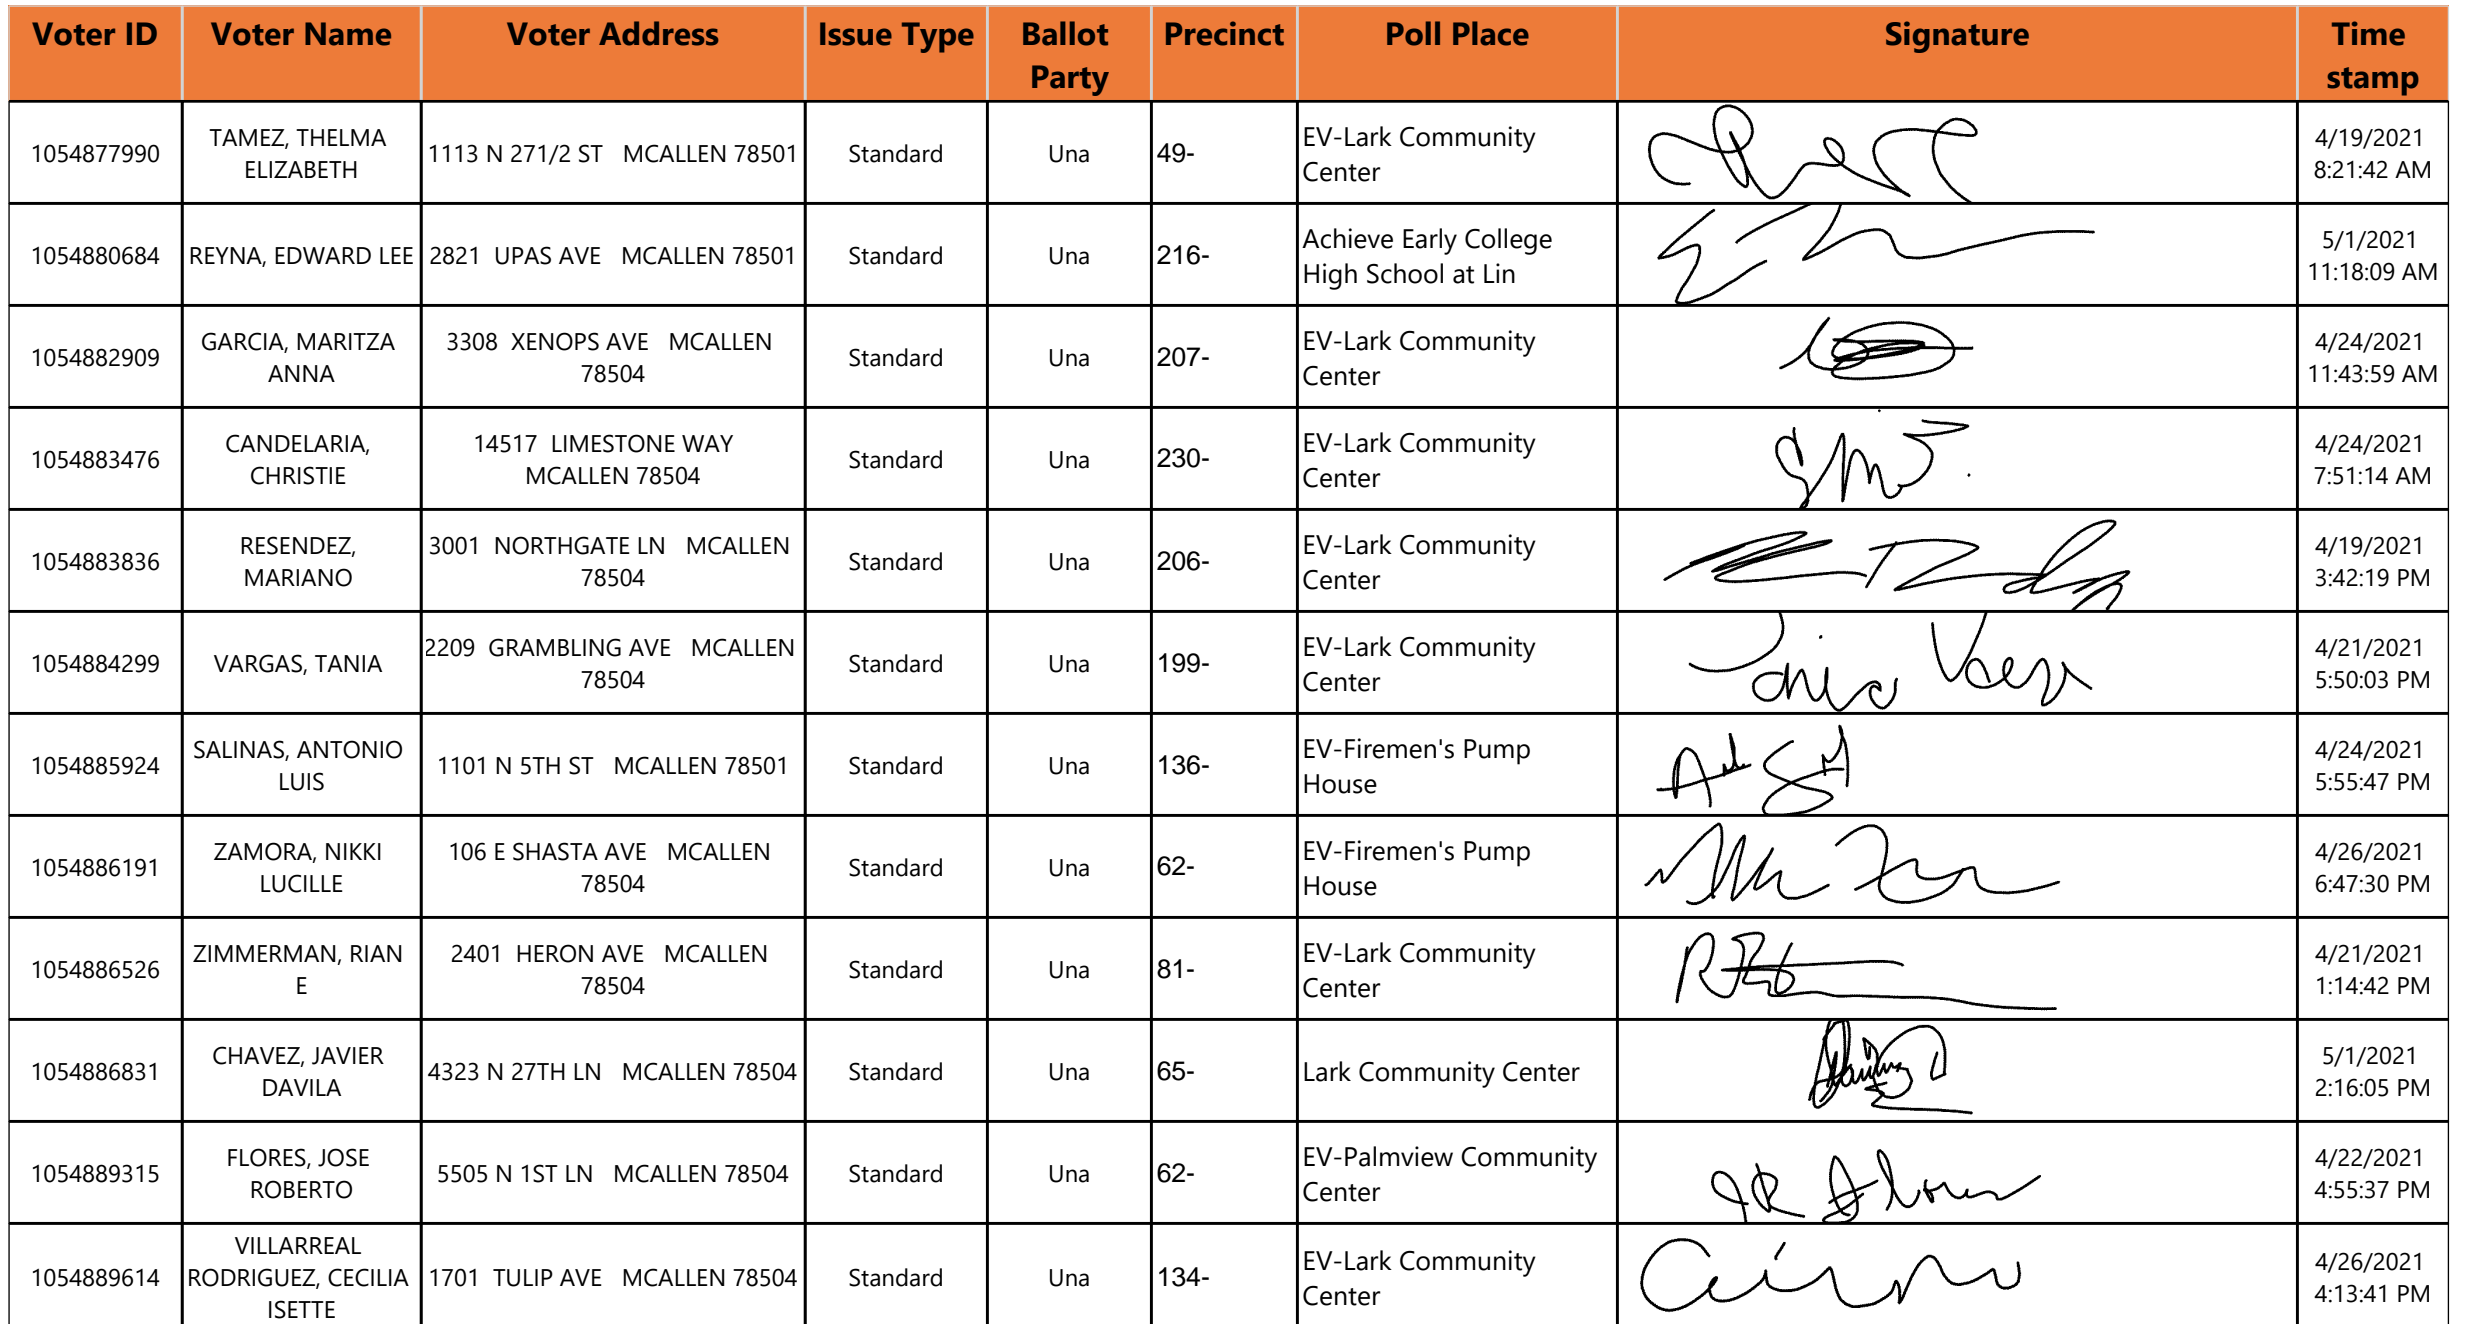 Voter ID Voter Name Voter Address Issue Type Ballot Party Precinct Poll Place Signature Time stamp
1054877990 TAMEZ, THELMA ELIZABETH 1113 N 271/2 ST MCALLEN 78501 Standard Una 49- EV-Lark Community Center 4/19/2021 8:21:42 AM
1054880684 REYNA, EDWARD LEE 2821 UPAS AVE MCALLEN 78501 Standard Una 216- Achieve Early College High School at Lin 5/1/2021 11:18:09 AM
1054882909 GARCIA, MARITZA ANNA 3308 XENOPS AVE MCALLEN 78504 Standard Una 207- EV-Lark Community Center 4/24/2021 11:43:59 AM
1054883476 CANDELARIA, CHRISTIE 14517 LIMESTONE WAY MCALLEN 78504 Standard Una 230- EV-Lark Community Center 4/24/2021 7:51:14 AM
1054883836 RESENDEZ, MARIANO 3001 NORTHGATE LN MCALLEN 78504 Standard Una 206- EV-Lark Community Center 4/19/2021 3:42:19 PM
1054884299 VARGAS, TANIA 2209 GRAMBLING AVE MCALLEN 78504 Standard Una 199- EV-Lark Community Center 4/21/2021 5:50:03 PM
1054885924 SALINAS, ANTONIO LUIS 1101 N 5TH ST MCALLEN 78501 Standard Una 136- EV-Firemen's Pump House 4/24/2021 5:55:47 PM
1054886191 ZAMORA, NIKKI LUCILLE 106 E SHASTA AVE MCALLEN 78504 Standard Una 62- EV-Firemen's Pump House 4/26/2021 6:47:30 PM
1054886526 ZIMMERMAN, RIAN E 2401 HERON AVE MCALLEN 78504 Standard Una 81- EV-Lark Community Center 4/21/2021 1:14:42 PM
1054886831 CHAVEZ, JAVIER DAVILA 4323 N 27TH LN MCALLEN 78504 Standard Una 65- Lark Community Center 5/1/2021 2:16:05 PM
1054889315 FLORES, JOSE ROBERTO 5505 N 1ST LN MCALLEN 78504 Standard Una 62- EV-Palmview Community Center 4/22/2021 4:55:37 PM
1054889614 VILLARREAL RODRIGUEZ, CECILIA ISETTE 1701 TULIP AVE MCALLEN 78504 Standard Una 134- EV-Lark Community Center 4/26/2021 4:13:41 PM